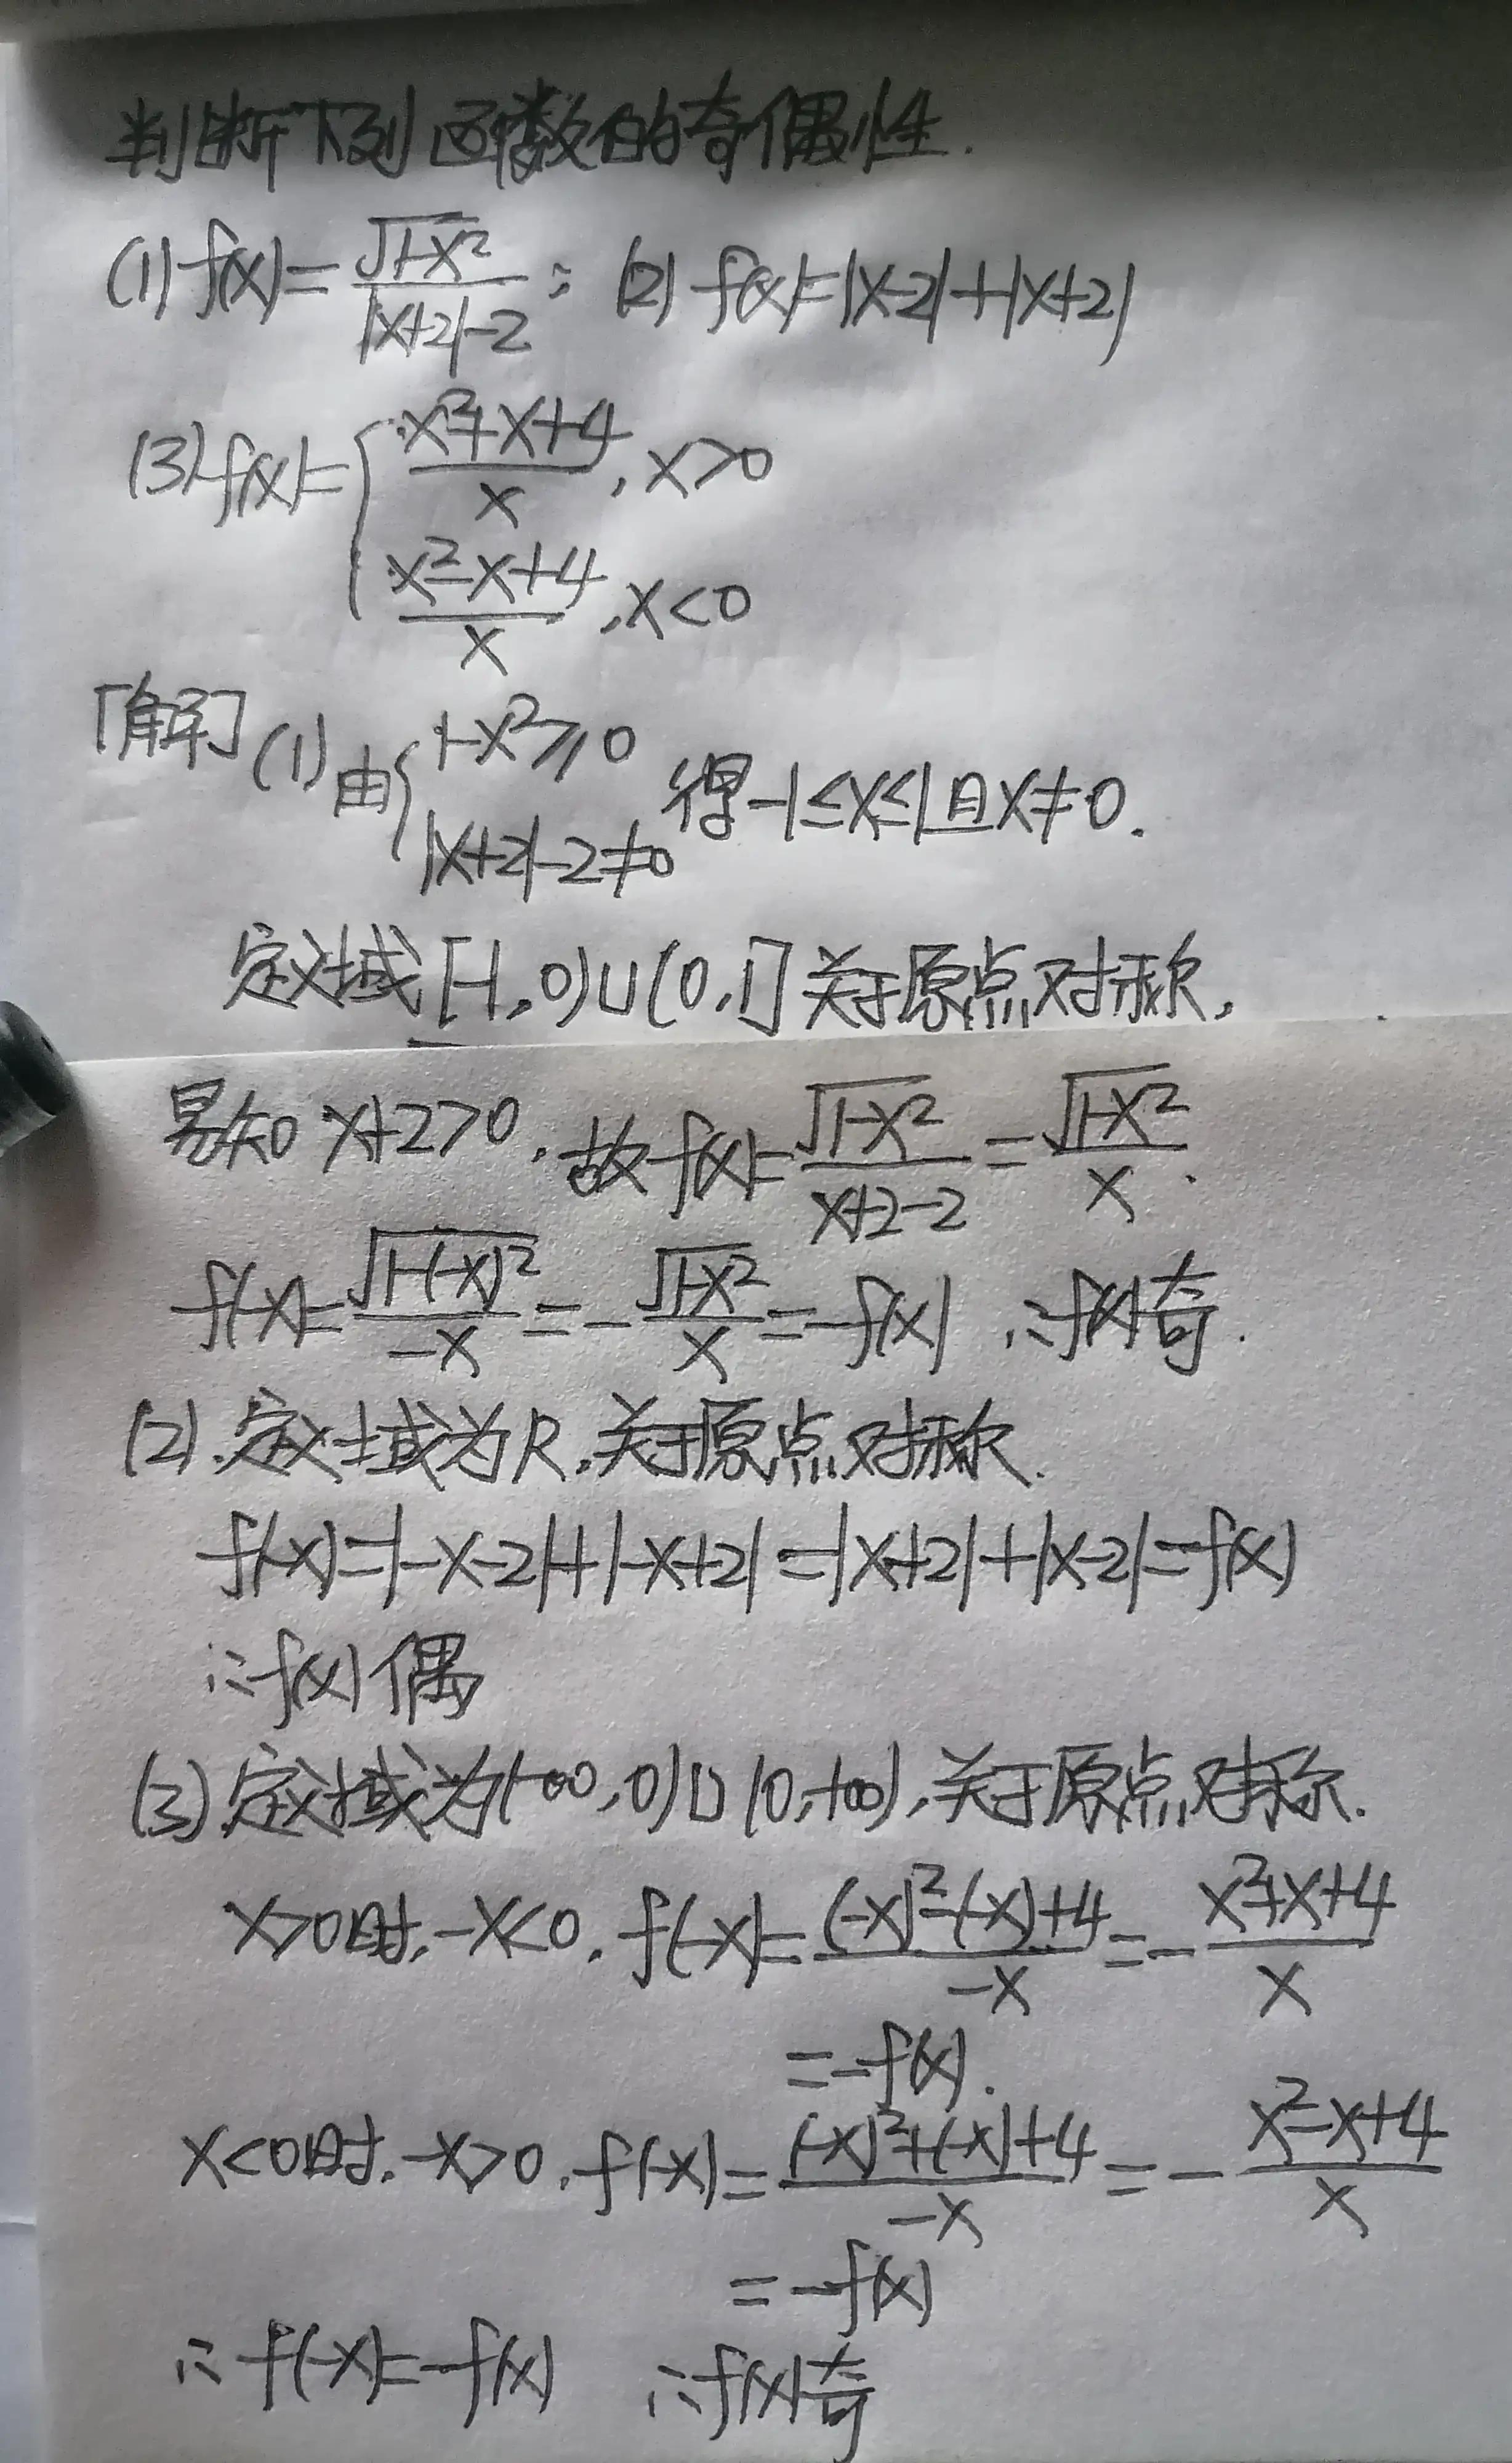 判断下列函数的奇偶性.
(1) f(x)=√(1-x²)/(|x+2|-2); (2) f(x)=|x-2|+|x+2|
(3) f(x)={(x²+x+4)/x, x>0
(x²-x+4)/x, x<0
「解」(1)由{1-x²≥0
|x+2|-2≠0 得-1≤x≤1且x≠0.
定义域[-1,0)∪(0,1]关于原点对称,
易知x+2>0,故f(x)=√(1-x²)/(x+2-2)=√(1-x²)/x.
f(-x)=√(1-(-x)²)/(-x)=-√(1-x²)/x=-f(x) ∴f(x)奇.
(2).定义域为R,关于原点对称.
f(-x)=|-x-2|+|-x+2|=|x+2|+|x-2|=f(x)
∴f(x)偶
(3)定义域为(-∞,0)∪(0,+∞),关于原点对称.
x>0时,-x<0,f(-x)=((-x)²-(-x)+4)/(-x)=-(x²+x+4)/x
=-f(x).
x<0时,-x>0,f(-x)=((-x)²+(-x)+4)/(-x)=-(x²-x+4)/x
=-f(x)
∴f(-x)=-f(x) ∴f(x)奇